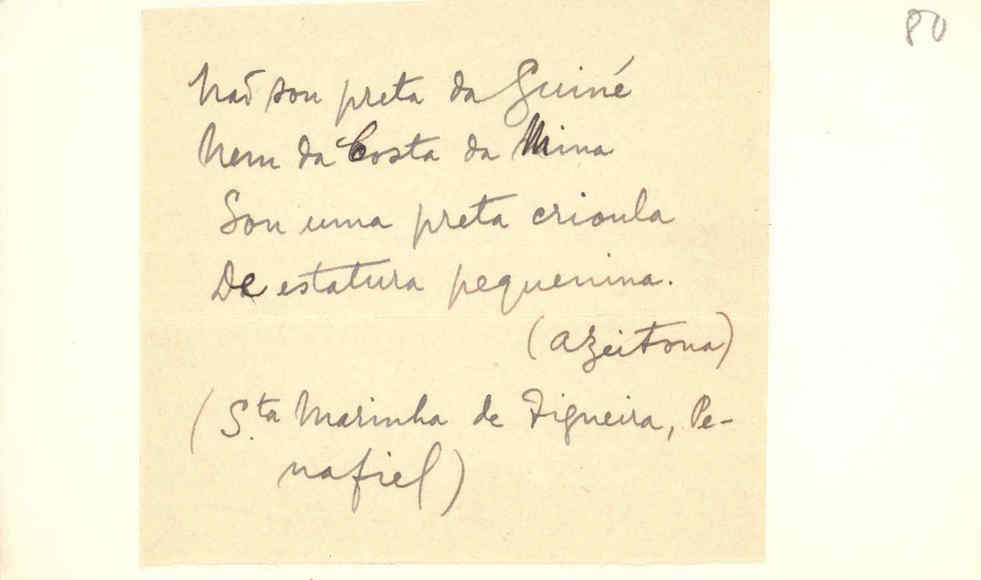 80
Não sou preta da Guiné
Nem da Costa da Mina
Sou uma preta crioula
De estatura pequenina.
(azeitona)
(S.ta Marinha de Figueira, Pe-
nafiel)